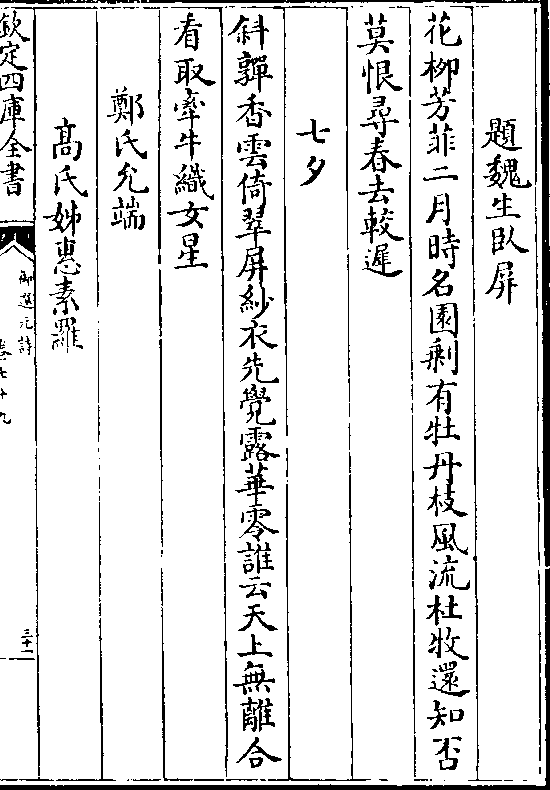 題魏生臥屏
花柳芳菲二月時名園剩有牡丹枝風流杜牧還知否
莫恨尋春去較遲
七夕
斜軃香雲倚翠屏紗衣先覺露華零誰云天上無離合
看取牽牛織女星
鄭氏允端
高氏姊惠素羅
欽定四庫全書
御選元詩
卷七十九
三十一